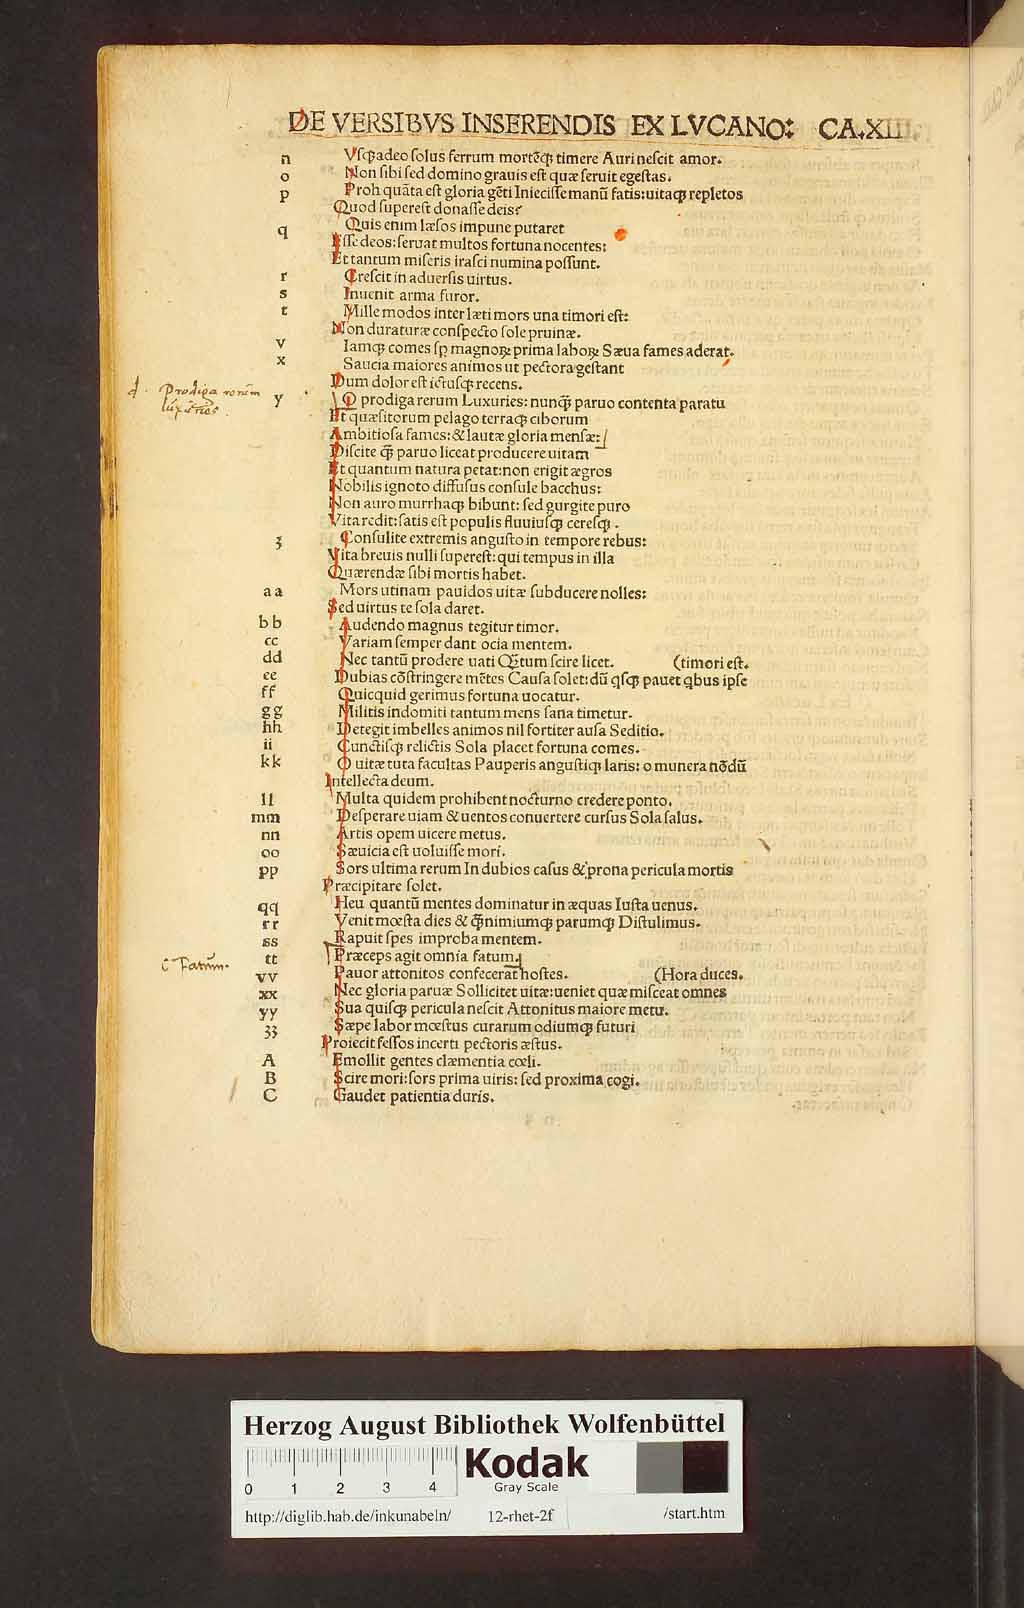 DE VERSIBVS INSERENDIS EX LVCANO: CA.XIII.
n Vſꝗ adeo ſolus ferrum mortẽꝗ timere Auri neſcit amor.
o Non ſibi ſed domino grauis eſt quæ ſeruit egeſtas.
p Proh quãta eſt gloria gẽti Inieciſſe manũ fatis: uitaꝗ repletos
Quod ſupereſt donaſſe deis?
q Quis enim læſos impune putaret
Eſſe deos: ſeruat multos fortuna nocentes:
Et tantum miſeris iraſci numina poſſunt.
r Creſcit in aduerſis uirtus.
s Inuenit arma furor.
t Mille modos inter læti mors una timori eſt:
Non duraturæ conſpecto ſole pruinæ.
v Iamꝗ comes ſꝑ magnoꝝ prima laboꝝ Sæua fames aderat.
x Saucia maiores animos ut pectora geſtant
Dum dolor eſt ictuſꝗ recens.
d. Prodiga rerum
luxuries.
y O prodiga rerum Luxuries: nunꝗ̃ paruo contenta paratu
Et quæſitorum pelago terraꝗ ciborum
Ambitioſa fames: & lautæ gloria menſæ:
Diſcite ꝗ̃ paruo liceat producere uitam
Et quantum natura petat: non erigit ægros
Nobilis ignoto diffuſus conſule bacchus:
Non auro murrhaꝗ bibunt: ſed gurgite puro
Vita redit: ſatis eſt populis fluuiuſꝗ cereſꝗ.
ʒ Conſulite extremis anguſto in tempore rebus:
Vita breuis nulli ſupereſt: qui tempus in illa
Quærendæ ſibi mortis habet.
aa Mors utinam pauidos uitæ ſubducere nolles:
Sed uirtus te ſola daret.
bb Audendo magnus tegitur timor.
cc Variam ſemper dant ocia mentem.
dd Nec tantũ prodere uati Q̃tum ſcire licet. (timori eſt.
ee Dubias cõſtringere mẽtes Cauſa ſolet: dũ qſꝗ pauet qbus ipſe
ff Quicquid gerimus fortuna uocatur.
gg Militis indomiti tantum mens ſana timetur.
hh Detegit imbelles animos nil fortiter auſa Seditio.
ii Cunctiſꝗ relictis Sola placet fortuna comes.
kk O uitæ tuta facultas Pauperis anguſtiꝗ laris: o munera nõdũ
Intellecta deum.
ll Multa quidem prohibent nocturno credere ponto.
mm Deſperare uiam & uentos conuertere curſus Sola ſalus.
nn Artis opem uicere metus.
oo Sæuicia eſt uoluiſſe mori.
pp Sors ultima rerum In dubios caſus & prona pericula mortis
Præcipitare ſolet.
qq Heu quantũ mentes dominatur in æquas Iuſta uenus.
rr Venit mœſta dies & ꝗ̃ nimiumꝗ parumꝗ Diſtulimus.
ss Rapuit ſpes improba mentem.
tt Præceps agit omnia fatum.
c Fatum.
vv Pauor attonitos confecerat hoſtes. (Hora duces.
xx Nec gloria paruæ Sollicitet uitæ: ueniet quæ miſceat omnes
yy Sua quiſꝗ pericula neſcit Attonitus maiore metu.
ʒʒ Sæpe labor mœſtus curarum odiumꝗ futuri
Proiecit feſſos incerti pectoris æſtus.
A Emollit gentes clæmentia cœli.
B Scire mori: ſors prima uiris: ſed proxima cogi.
C Gaudet patientia duris.
Herzog August Bibliothek Wolfenbüttel
0 1 2 3 4
Kodak
Gray Scale
http://diglib.hab.de/inkunabeln/ 12-rhet-2f /start.htm